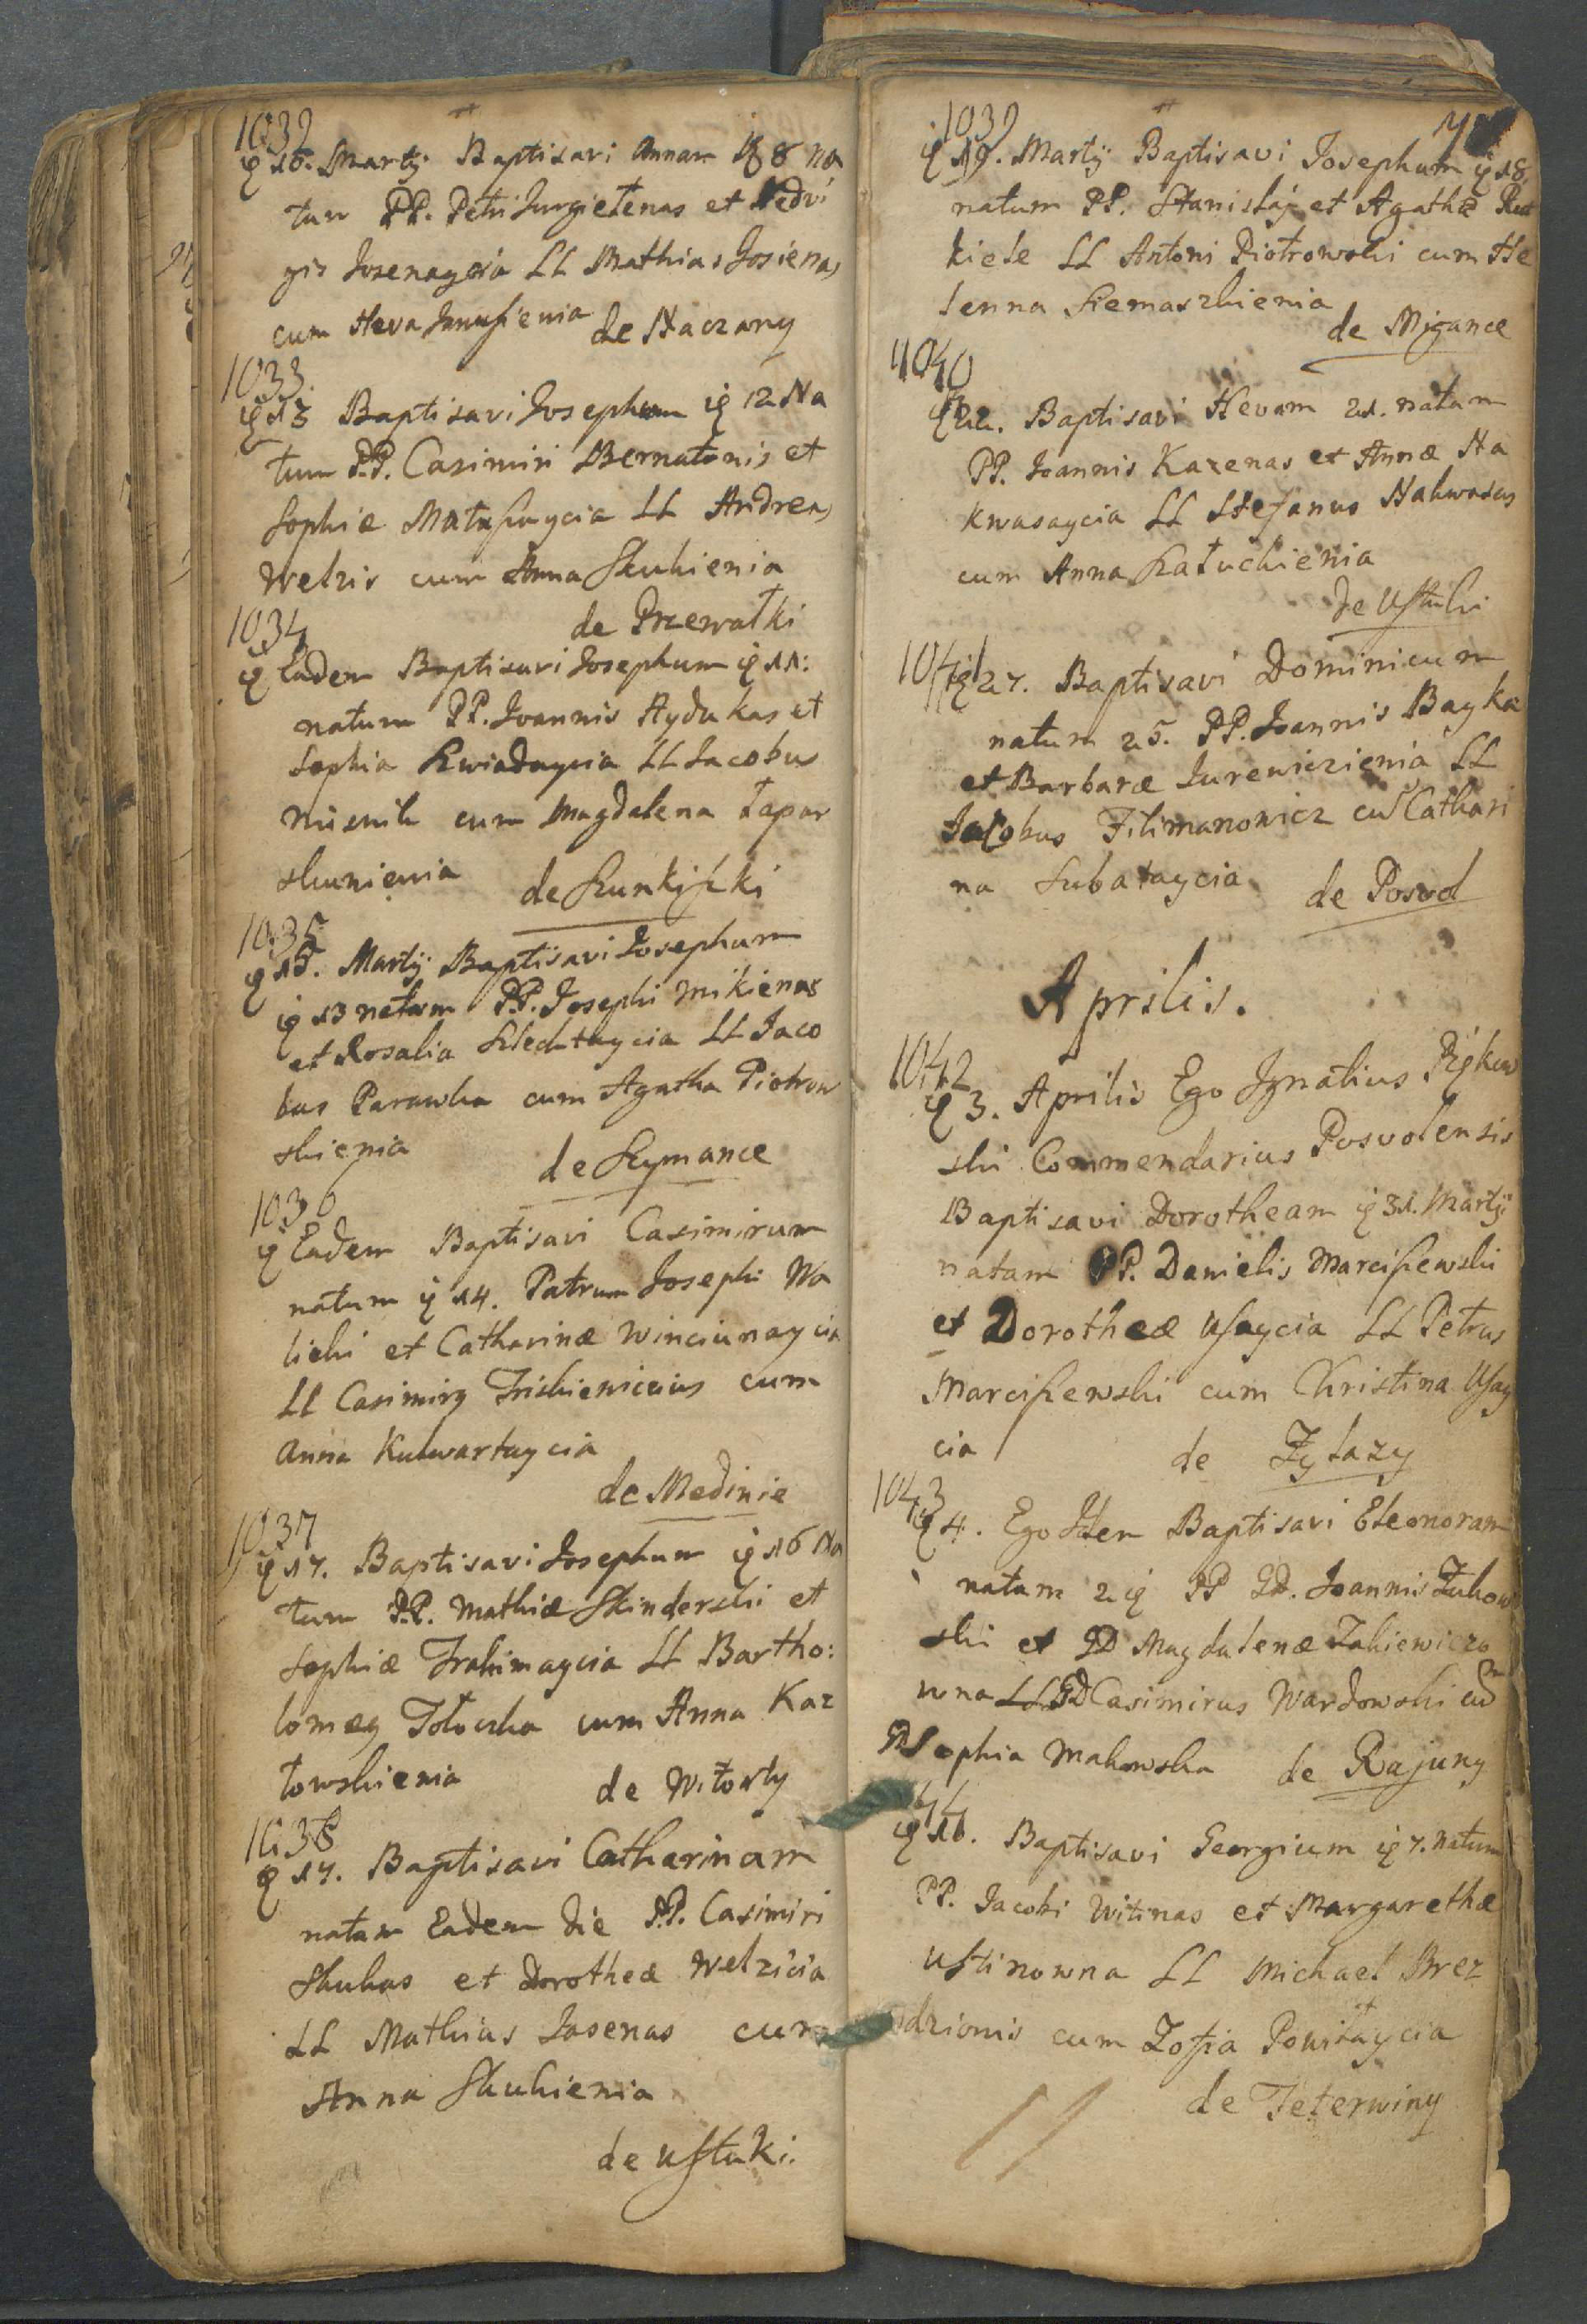 1032
ig 10. Martij Baptisavi Annam ig 8 na
tam PP. Petri Jurgielenas et Hedvi
gis Josenaycia LL Mathias Josienas
cum Heva Janusienia de Naczany
1033.
ig 13 Baptisavi Josephum ig 12 Na
tum PP. Casimiri Bernatonis et
Sophiæ Matusaycia LL Andreas
Welzis cum Anna Skukienia
de Przewałki
1034
ig Eadem Baptisavi Josephum ig 11:
natum PP. Joannis Aydukas et
Sophia Kwiadaycia LL Jacobus
Misnik cum Magdalena Łapar
skunienia de Kunkiszki
1035
ig 15. Martij Baptisavi Josephum
ig 13 natum PP. Josephi Mikienas
et Rosalia Klechtaycia LL Jaco
bus Parawka cum Agatha Piotrow
skienia de Kymance
1036
ig Eadem Baptisavi Casimirum
natum ig 14. Patrum Josephi Wa
licki et Catharinæ Winciunaycia
LL Casimirg Triskiewiczius cum
Anna Kulwartaycia
de Medinie
1037
ig 17. Baptisavi Josephum ig 16 Na
tum PP. Mathiæ Skinderski et
Sophiæ Trakimaycia LL Bartho:
lomeg Tołoczka cum Anna Kaz
łowskienia de Witorty
1038
ig 17. Baptisavi Catharinam
natam Eadem die PP. Casimiri
Skukas et Dorotheæ Welzicia
LL Mathias Jasenas cum
Anna Skukienia
de Ustuki.
1039
ig 19. Martij Baptisavi Josephum ig 18
natum PP. Stanislai et Agathæ Rut
kiele LL Antoni Piotrowski cum He
lenna Siemaszkienia
de Migance
1040
ig 22. Baptisavi Hevam 21. natam
PP. Joannis Kazenas et Annæ Na
kwasaycia LL Stefanus Nakwasas
cum Anna Katuckienia
de Ustuki
1041
ig 27. Baptisavi Dominicum
natum 25. PP. Joannis Bayka
et Barbaræ Jurewiczienia LL
Jacobus Filimanowicz cu Cathari
na Subataycia de Posvol
Aprilis.
1042
ig 3. Aprilis Ego Ignatius Pigkow
ski Commendarius Posvolensis
Baptisavi Dorotheam ig 31. Martij
natam PP. Danielis Marciszewski
et Dorotheæ Usaycia LL Petrus
Marciszewski cum Christina Usay
cia de Zylazy
1043
ig 4. Ego Idem Baptisavi Eleonoram
natam 2 ig PP GD. Joannis Żukow
ski et GD Magdalenæ Zakiewiczo
wna LL GD Casimirus Wardowski cu
GD Sophia Makowska de Rajuny
44
ig 10. Baptisavi Georgium ig 7. natum
PP. Jacobi Witinas et Margarethæ
Ustinowna LL Michael Brez
dzionis cum Zofia Powiłaycia
de Teterwiny